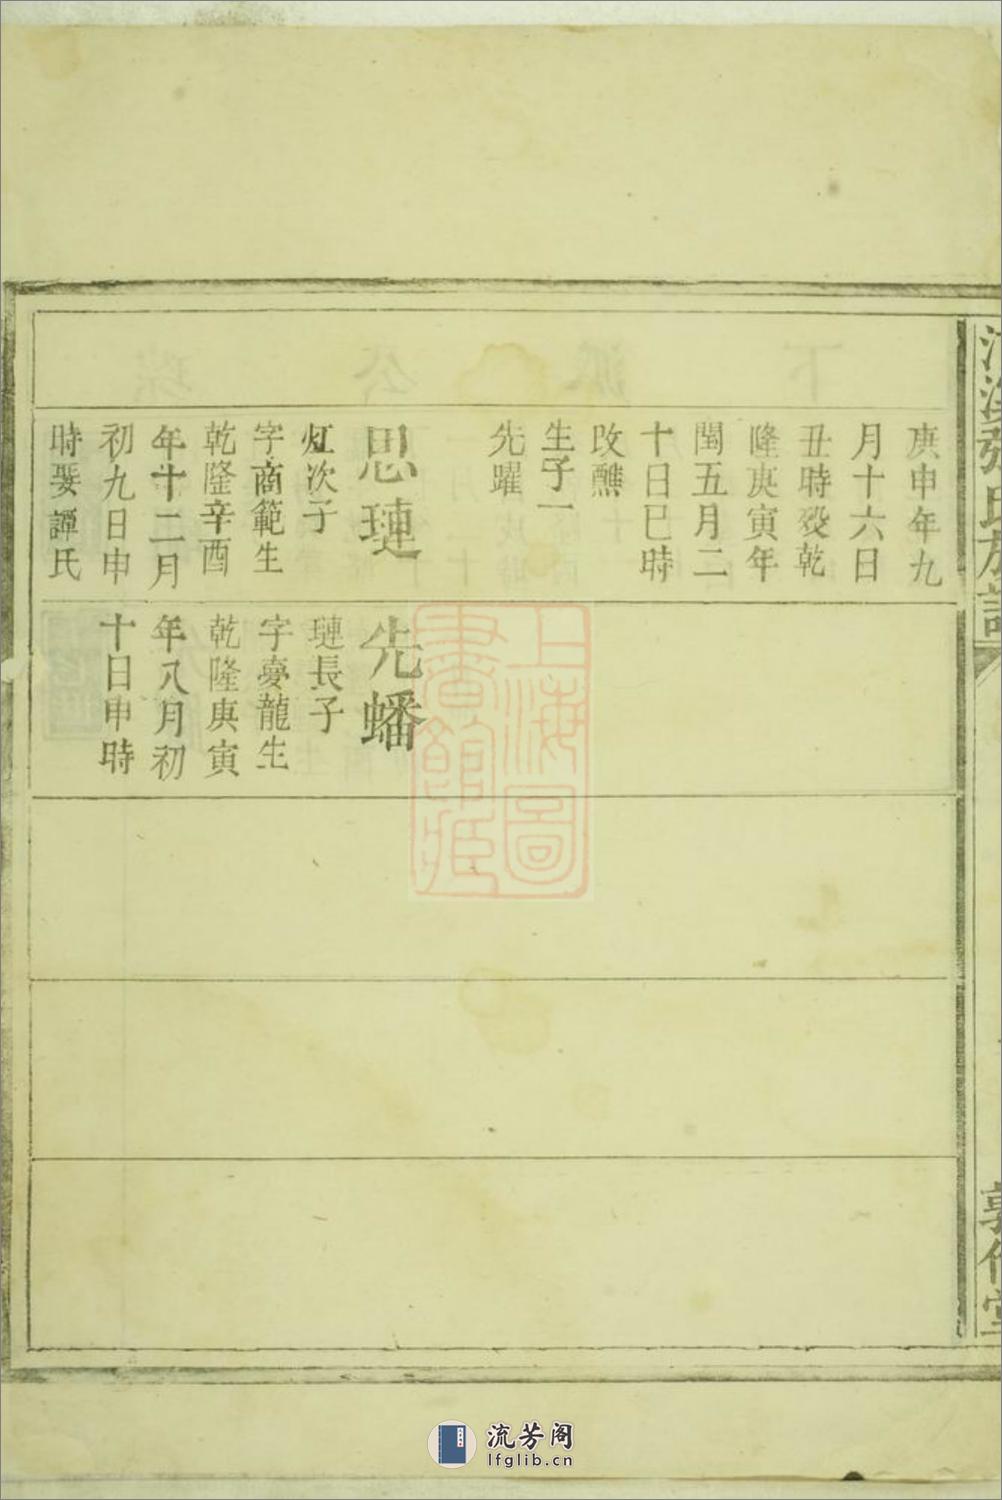 庚申年九
月十六日
丑時歿乾
隆庚寅年
閏五月二
十日巳時
改醮
生子一
先躍
思璉
灴次子
字商範生
乾隆辛酉
年十二月
初九日申
時娶譚氏
先蟠
璉長子
字夢龍生
乾隆庚寅
年八月初
十日申時
張氏族譜
敦
堂
上海圖
書館藏
流芳阁
lfglib.cn